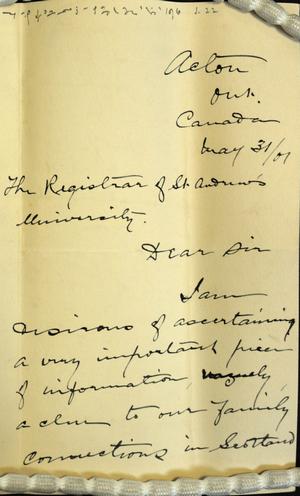 Acton
Ont.
Canada
May 31/01
The Registrar of St Andrew's
University.
Dear Sir
I am
desirous of ascertaining
a very important piece
of information,
a clue to our family
connections in Scotland